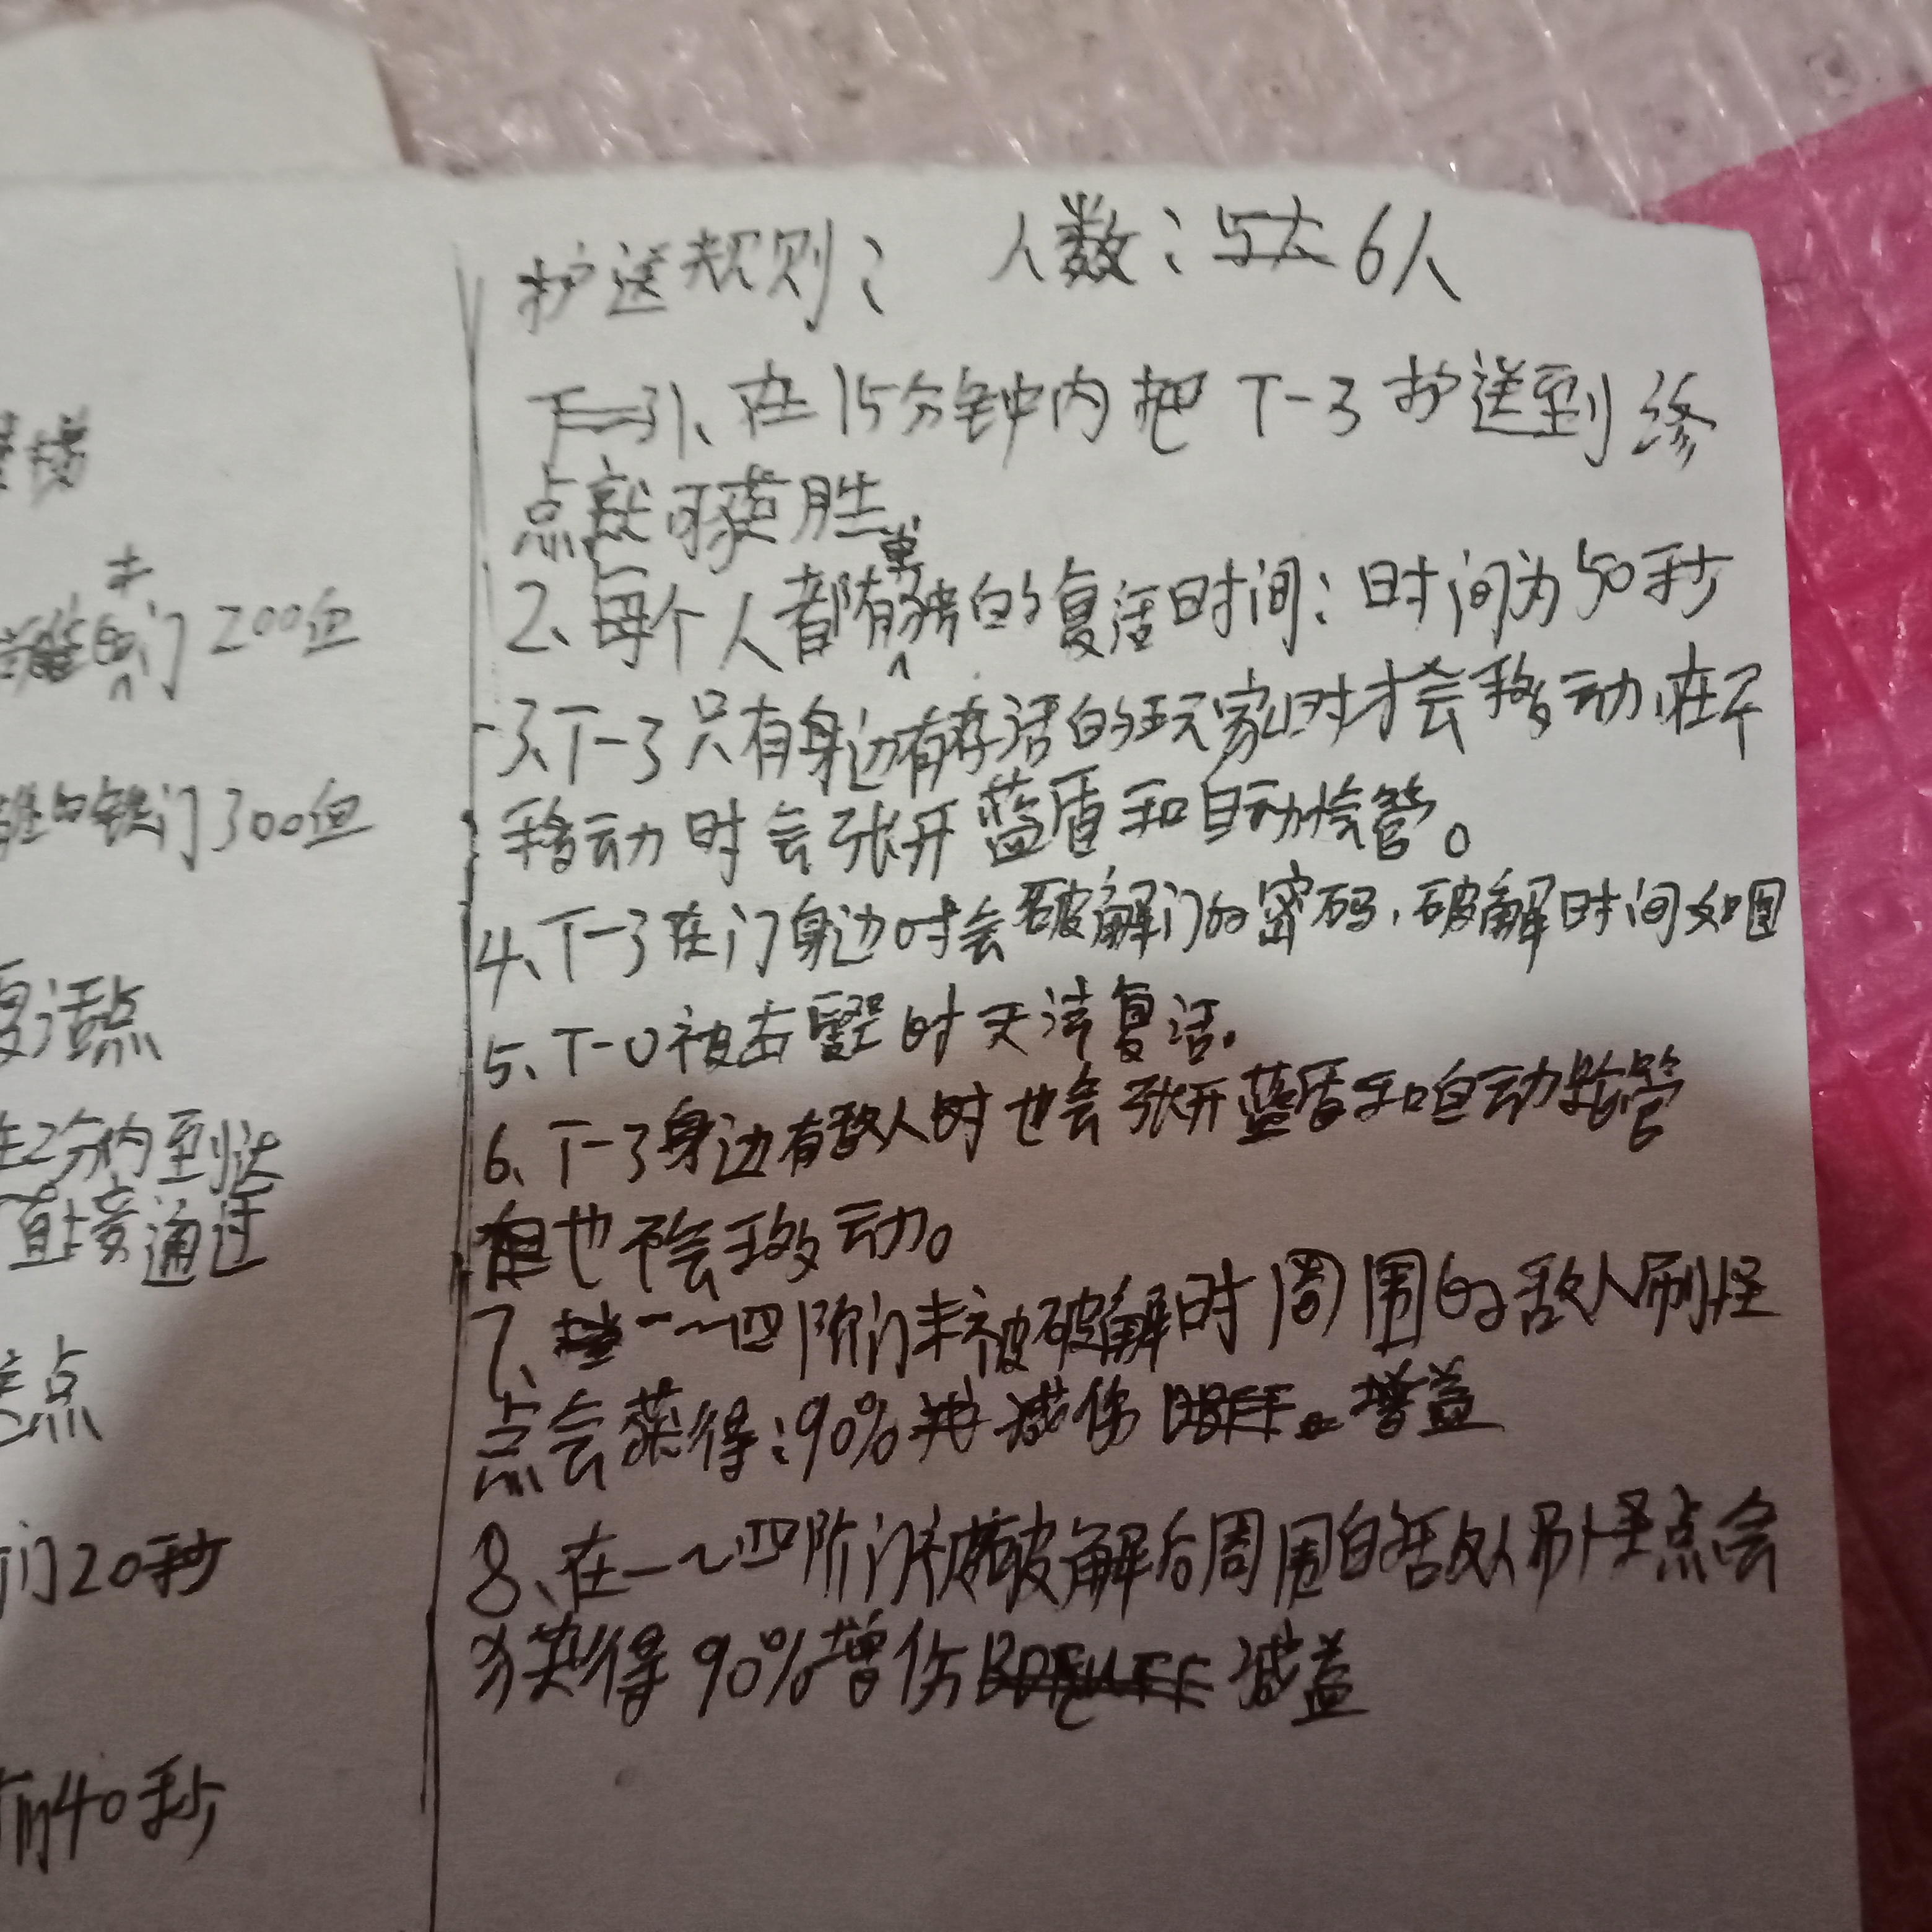 护送规则： 人数：6人
1、在15分钟内把T-3护送到终
点就可获胜
2、每个人都有单独的复活时间：时间为50秒
3、T-3只有身边有存活的玩家时才会移动，在不
移动时会张开蓝盾和自动
4、T-3在门身边时会破解门的密码，破解时间如图
5、T-0被击毁时无法复活。
6、T-3身边有敌人时也会张开蓝盾和自动
但也不会移动。
7、一～四阶门未被破解时周围的敌人刷怪
点会获得：90%减伤增益
8、在一～四阶门被破解后周围的敌人刷怪点会
获得90%增伤减益
门200血
的铁门300血
复活点
2分内到达
直接通过
点
门20秒
40秒